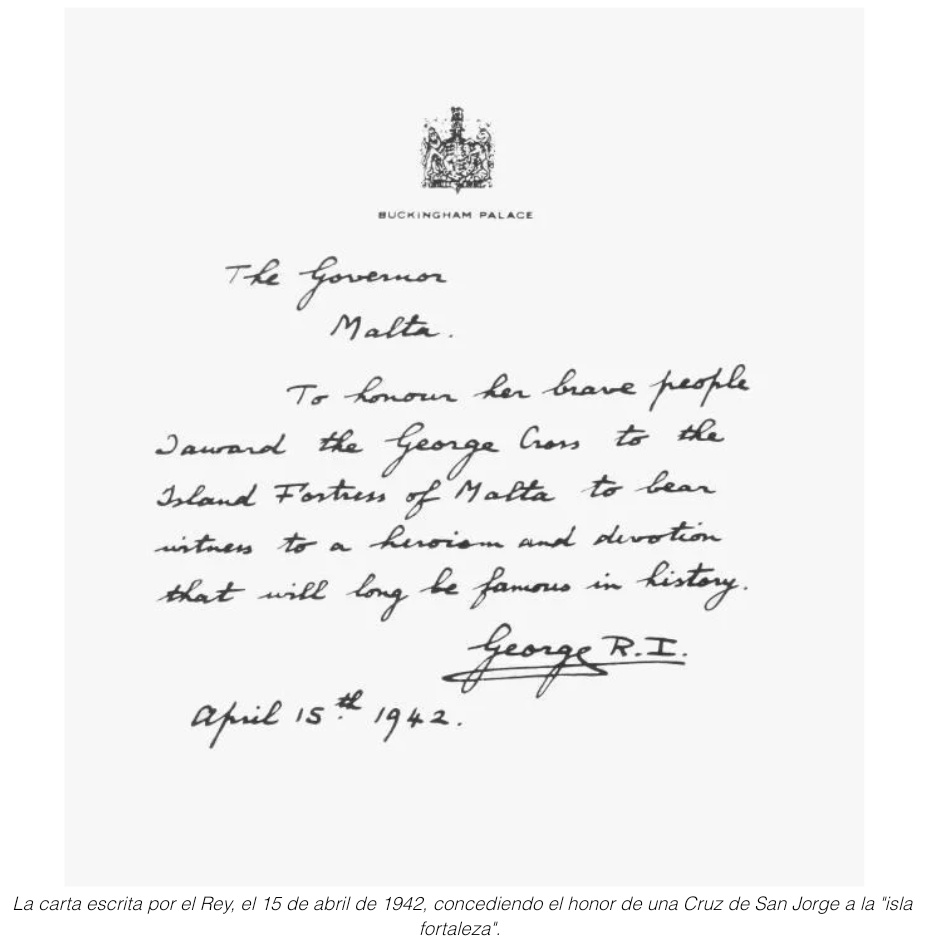 BUCKINGHAM PALACE
The Governor
Malta.
To honour her brave people
I award the George Cross to the
Island Fortress of Malta to bear
witness to a heroism and devotion
that will long be famous in history.
George R.I.
April 15th 1942.
La carta escrita por el Rey, el 15 de abril de 1942, concediendo el honor de una Cruz de San Jorge a la "isla
fortaleza".